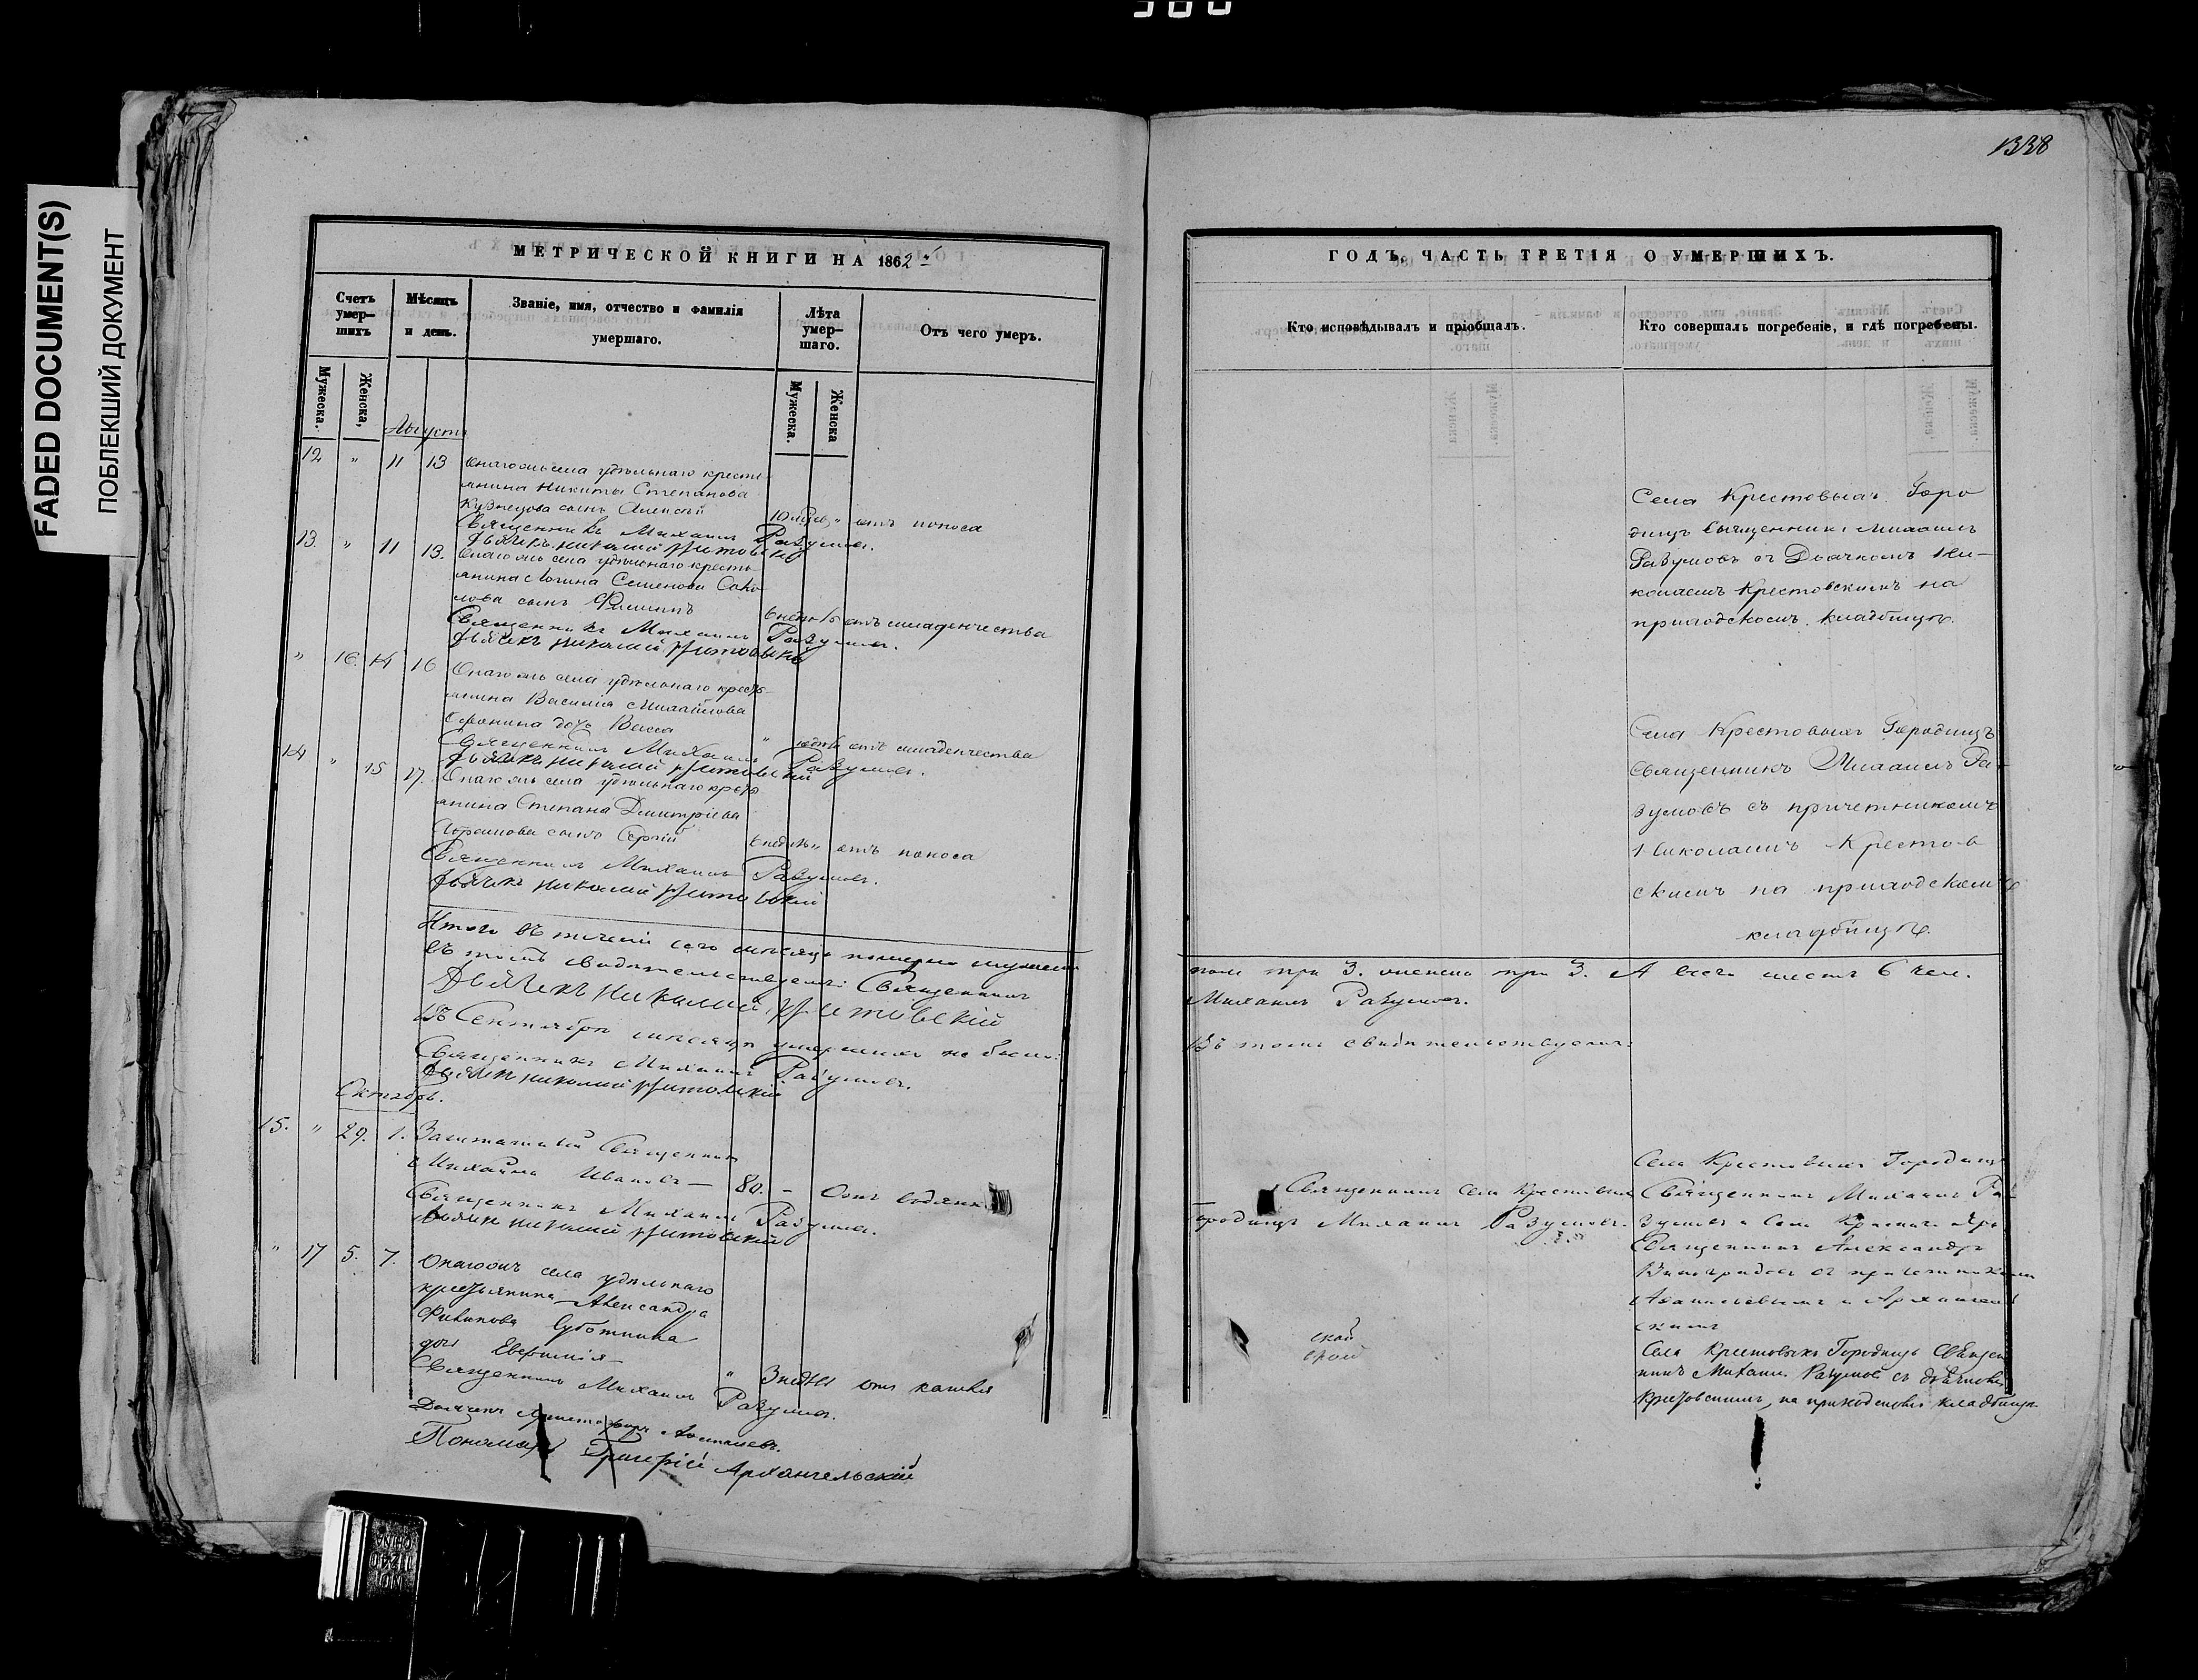 FADED DOCUMENT(S)
ПОБЛЕКШИЙ ДОКУМЕНТ
1338
МЕТРИЧЕСКОЙ КНИГИ НА 1862й
Счетъ умер-шихъ
Мѣсяцъ и день.
Званіе, имя, отчество и фамилія умершаго.
Лѣта умер-шаго.
Отъ чего умеръ.
Мужеска.
Женска,
Мужеска.
Женска
Августъ
12 " 11 13 Онагожъ села удѣльнаго кресть-
янина Никиты Степанова
Кузнецова сынъ Алексѣй
отъ поноса
Священникъ Михаилъ Разумовъ.
Дьячекъ Николай Крестовскій
13. " 11 13. Онагожъ села удѣльнаго кресть-
янина Логина Семенова Соко-
лова сынъ Филиппъ
6 недѣль отъ младенчества
Священникъ Михаилъ Разумовъ.
Дьячекъ Николай Крестовскій
" 16. 14 16 Онагожъ села удѣльнаго кресть-
янина Василія Михайлова
дочь Васса
" отъ младенчества
Священникъ Михаилъ Разумовъ.
Дьячекъ Николай Крестовскій
14 " 15 17. Онагожъ села удѣльнаго кресть-
янина Степана Дмитріева
сынъ Сергій
6 недѣль " отъ поноса
Священникъ Михаилъ Разумовъ.
Дьячекъ Николай Крестовскій
Итого въ теченіи сего мѣсяца померло мужеска
въ томъ свидѣтельствуемъ: Священникъ
Дьячекъ Николай Крестовскій
Въ Сентябрѣ мѣсяцѣ умершихъ не было.
Священникъ Михаилъ Разумовъ.
Дьячекъ Николай Крестовскій
Октябрь.
15. " 29. 1. Заштатный Священникъ
Михаилъ Ивановъ — 80. - Отъ водянки
Священникъ Михаилъ Разумовъ.
Дьячекъ Николай Крестовскій
" 17 5. 7. Онагожъ села удѣльнаго
крестьянина Александра
Филипова Суботина
дочь Евфимія
" 3 недѣли отъ кашля
Священникъ Михаилъ Разумовъ.
Дьячекъ
Пономарь Григорій Архангельскій
ГОДЪ, ЧАСТЬ ТРЕТІЯ О УМЕРШИХЪ.
Кто исповѣдывалъ и пріобщалъ.
Кто совершалъ погребеніе, и гдѣ погребены.
Села Крестовыхъ Горо
дищъ Священникъ Михаилъ
Разумовъ съ Дьячкомъ Ни-
колаемъ Крестовскимъ на
приходскомъ кладбищѣ.
Села Крестовыхъ Городищъ
Священникъ Михаилъ Ра-
зумовъ съ причетникомъ
Николаемъ Крестов
скимъ на приходскомъ
кладбищѣ.
пола три 3. женска три 3. А всего шесть 6 чел.
Михаилъ Разумовъ.
Въ томъ свидѣтельствуемъ:
Священникъ села Крестовыхъ
Городищъ Михаилъ Разумовъ.
Села Крестовыхъ Городищъ
Священникъ Михаилъ Ра-
зумовъ и Села Краснаго Яра
Священникъ Александръ
Виноградовъ съ причетниками
и Архангель
скимъ
Села Крестовыхъ Городищъ Священ
никъ Михаилъ Разумовъ съ дьячкомъ
Крестовскимъ, на приходскомъ кладбищѣ